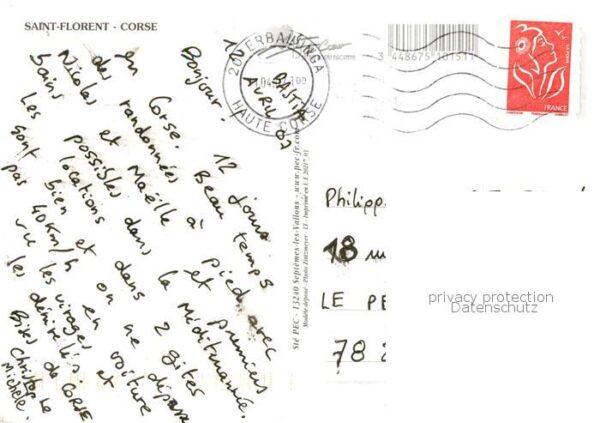 SAINT-FLORENT - CORSE
12 Avril 07
Bonjour!
12 jours
en Corse. Beau temps
des randonnées à pied avec
Nicolas et Maëlle et premiers
bains possibles dans la Méditerranée.
Les locations dans 2 gîtes
sont bien et on ne dépasse
pas 40Km/h en voiture
vu les virages et
les dénivelés de CORSE
Bises Christophe
Michèle.
20 ERBALUNGA
BASTIA
HAUTE CORSE
3 448675 101511
LA POSTE
FRANCE
Sté PEC - 13240 Septèmes-les-Vallons - www.pec-fr.com
Philipp
18
LE PE
78
privacy protection
Datenschutz